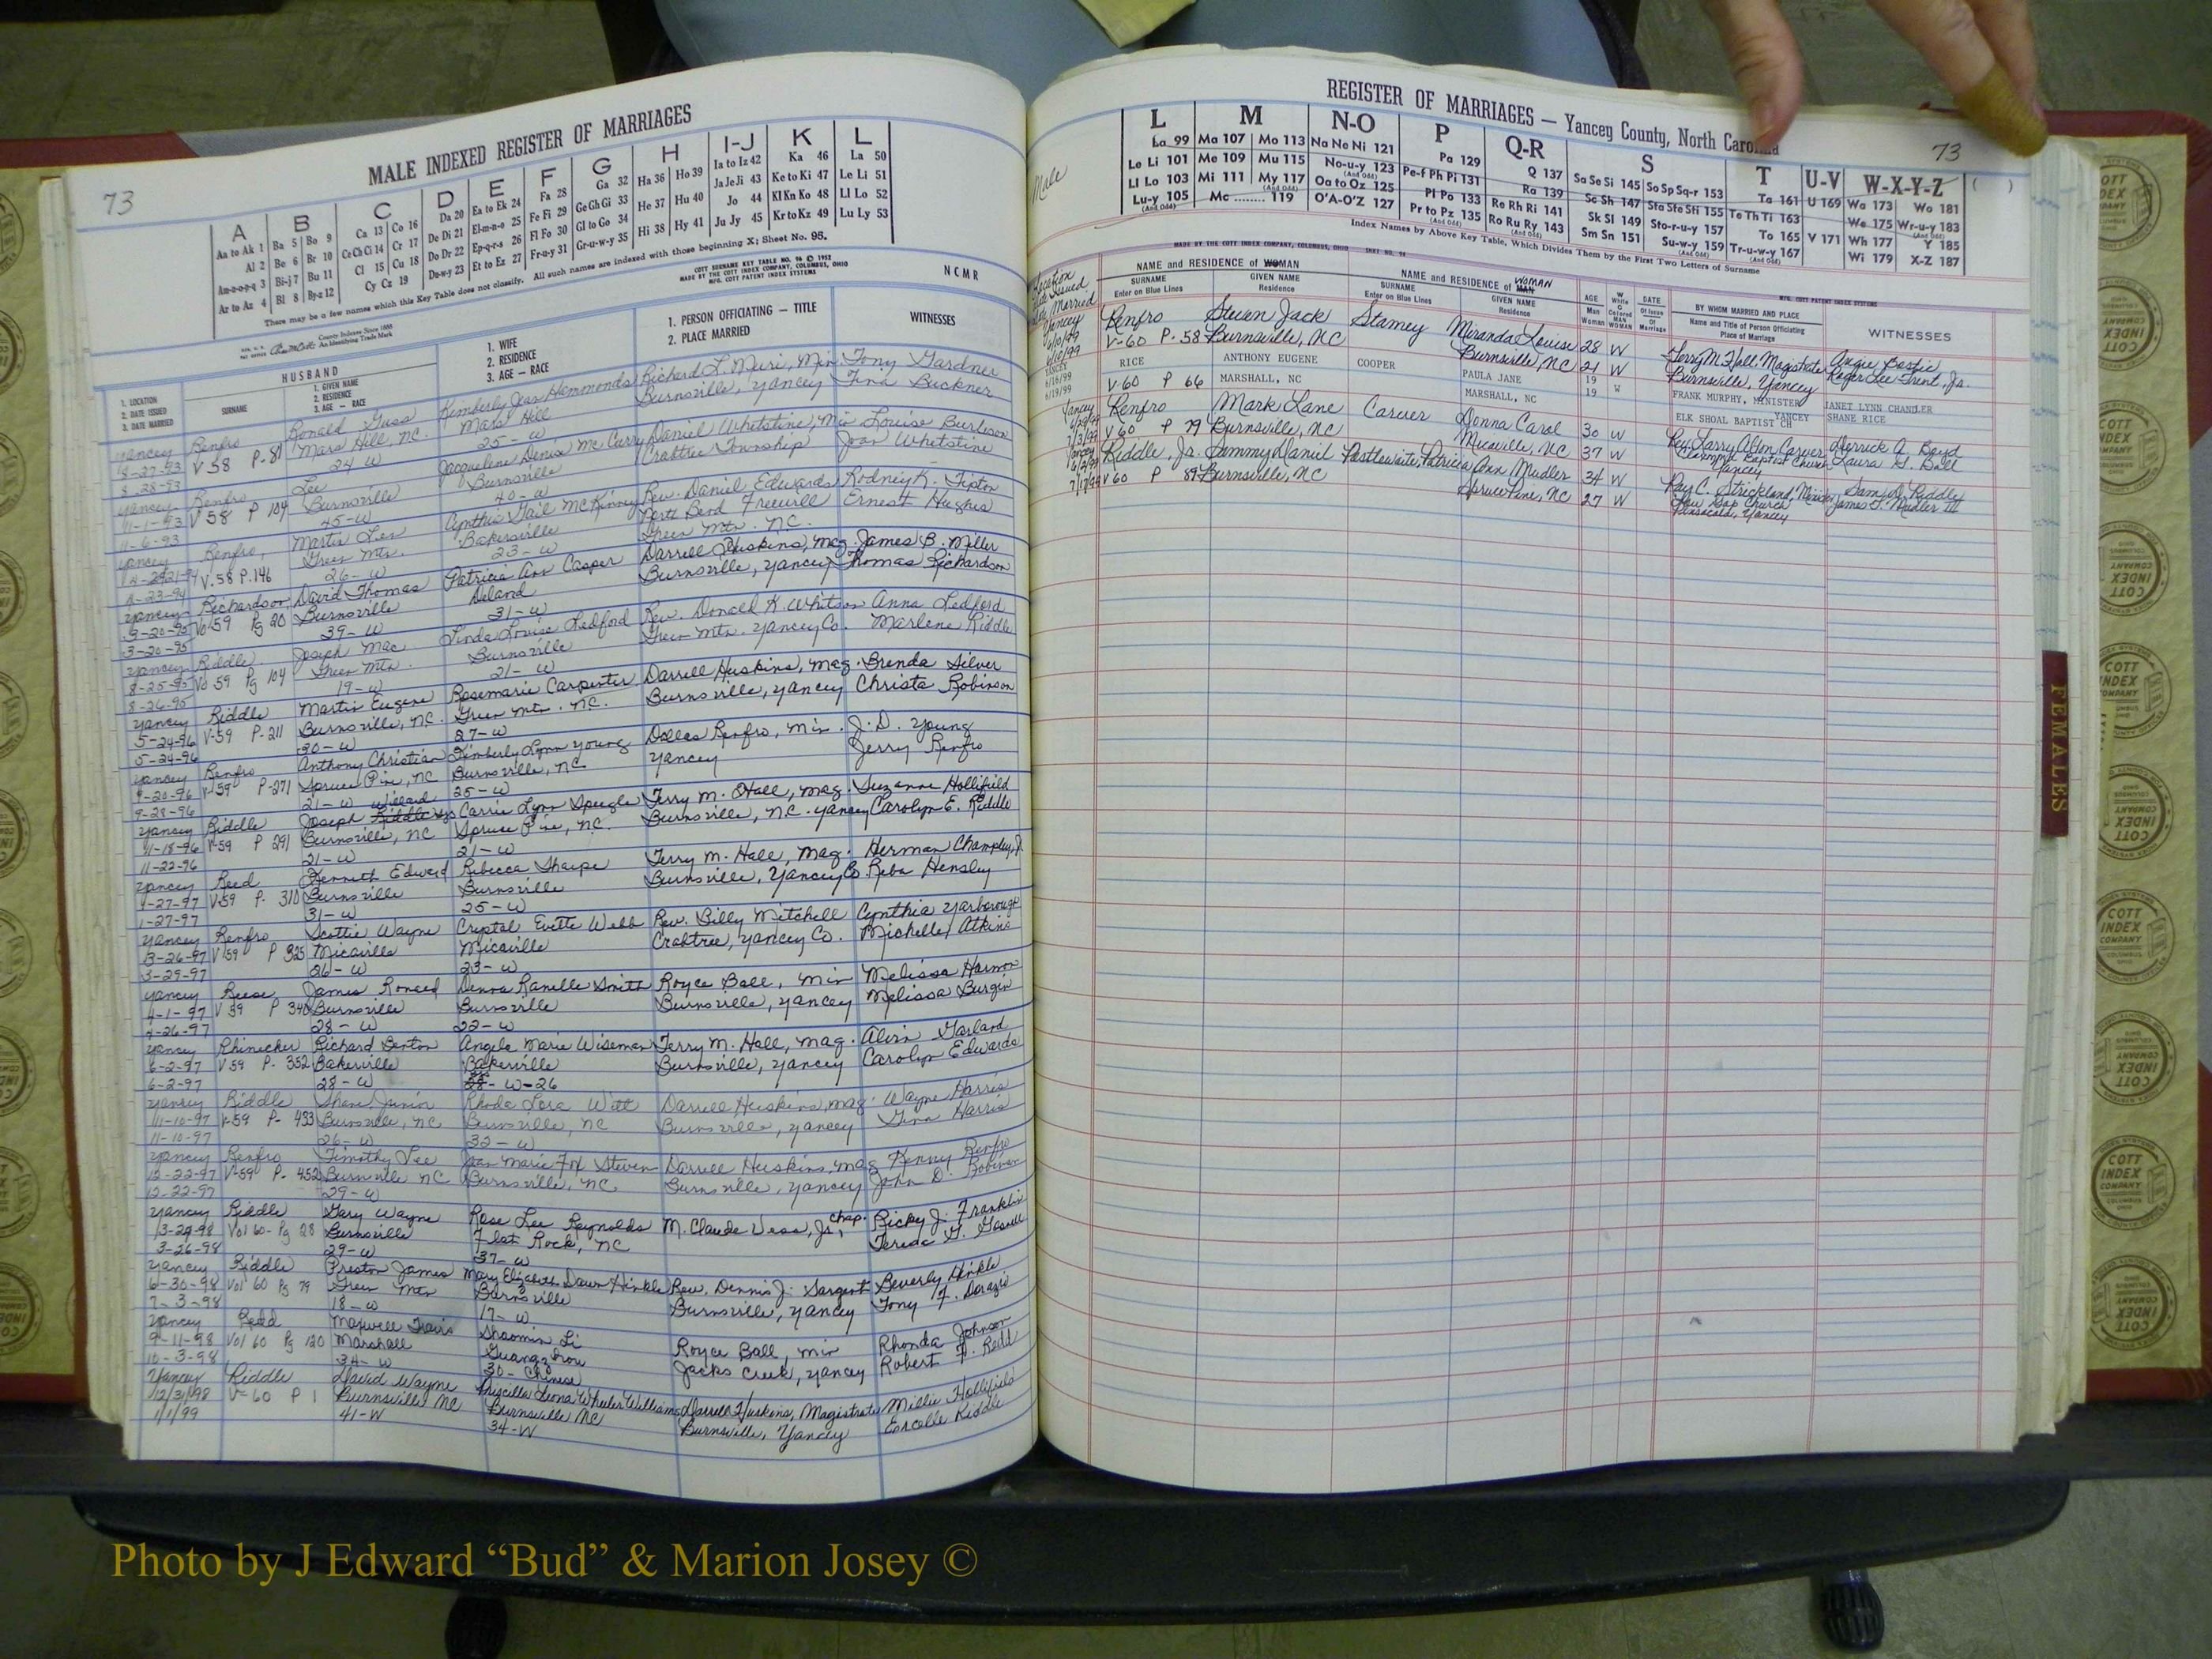 73
MALE INDEXED REGISTER OF MARRIAGES
A B C D E F G H I-J K L
Aa to Ak 1 Ba 5 Bo 9 Ca 13 Co 16 Da 20 Ea to Ek 24 Fa 28 Ga 32 Ha 36 Ho 39 Ia to Iz 42 Ka 46 La 50
Al 2 Be 6 Br 10 Ce Ch Ci 14 Cr 17 De Di 21 El-m-n-o 25 Fe Fi 29 Ge Gh Gi 33 He 37 Hu 40 Ja Je Ji 43 Ke to Ki 47 Le Li 51
Am-n-o-p-q 3 Bi-j 7 Bu 11 Cl 15 Cu 18 Do Dr 22 Ep-q-r-s 26 Fl Fo 30 Gl to Go 34 Hi 38 Hy 41 Jo 44 Kl Kn Ko 48 Ll Lo 52
Ar to Az 4 Bl 8 By-z 12 Cy Cz 19 Du-w-y 23 Et to Ez 27 Fr-u-y 31 Gr-u-w-y 35 Ju Jy 45 Kr to Kz 49 Lu Ly 53
There may be a few names which this Key Table does not classify. All such names are indexed with those beginning X; Sheet No. 95.
COTT SURNAME KEY TABLE NO. 96 © 1952
MADE BY THE COTT INDEX COMPANY, COLUMBUS, OHIO
MFG. COTT PATENT INDEX SYSTEMS
NCMR
County Indexes Since 1888
An Identifying Trade Mark
1. LOCATION
2. DATE ISSUED
3. DATE MARRIED
HUSBAND
SURNAME
1. GIVEN NAME
2. RESIDENCE
3. AGE — RACE
1. WIFE
2. RESIDENCE
3. AGE — RACE
1. PERSON OFFICIATING — TITLE
2. PLACE MARRIED
WITNESSES
Yancey Renfro Ronald Kimberly Jean Hammonds Richard L. Muri, Min Tony Gardner
8-27-93 V 58 P-81 Mars Hill, NC. Mars Hill Burnsville, Yancey Tina Buckner
8-28-93 24 W 25-W
Yancey Renfro Lee Jacquelene Denise McCurry Daniel Whetstine, Min Louise Burleson
11-1-93 V 58 P 104 Burnsville Burnsville Crabtree Township Joan Whetstine
11-6-93 45-W 40-W
Yancey Renfro, Martin Len Cynthia Gail McKinney Rev. Daniel Edwards Rodney K. Tipton
V.58 P.146 Green Mtn. Bakersville Freewill Ernest Hughes
4-23-94 26-W 23-W Green Mtn. NC.
Yancey Richardson David Thomas Patricia Ann Casper Darrell Huskins, Mag. James B. Miller
3-20-95 Vol 59 Pg 20 Burnsville Deland Burnsville, Yancey Thomas Richardson
3-20-95 39-W 31-W
Yancey Riddle Joseph Mac Linda Louise Ledford Rev. Donald K. Whitson Anna Ledford
8-25-95 Vo 59 Pg 104 Green Mtn. Burnsville Green Mtn. Yancey Co. Marlene Riddle
8-26-95 19-W 21-W
Yancey Riddle Martin Eugene Rosemarie Carpenter Darrell Huskins, Mag. Brenda Silver
5-24-96 V-59 P-211 Burnsville, NC. Green Mtn. NC. Burnsville, Yancey Christa Robinson
5-24-96 30-W 27-W
Yancey Renfro Anthony Christian Kimberly Lynn Young Dallas Renfro, Min. J. D. Young
9-20-96 V-59 P-271 Spruce Pine, NC Burnsville, NC. Yancey Jerry Renfro
9-28-96 21-W 25-W
Yancey Riddle Joseph Willard Carrie Lynn Speagle Terry M. Hall, Mag. Suzanne Hollifield
11-18-96 V-59 P 291 Burnsville, NC Spruce Pine, NC. Burnsville, N.C. Yancey Carolyn E. Riddle
11-22-96 21-W 21-W
Yancey Reed Kenneth Edward Rebecca Sharpe Terry M. Hall, Mag. Herman Champley, Jr.
1-27-97 V-59 P. 310 Burnsville Burnsville Burnsville, Yancey Co. Reba Hensley
1-27-97 31-W 25-W
Yancey Renfro Scottie Wayne Crystal Evette Webb Rev. Billy Mitchell Cynthia Yarborough
3-26-97 V 59 P 325 Micaville Micaville Crabtree, Yancey Co. Michelle Atkins
3-29-97 26-W 23-W
Yancey Reese James Ronald Denna Ranelle Smith Royce Ball, Min Melissa Harmon
4-1-97 V 59 P 340 Burnsville Burnsville Burnsville, Yancey Melissa Burgin
4-26-97 28-W 22-W
Yancey Rhinecker Richard Denton Angela Marie Wiseman Terry M. Hall, Mag. Alvin Garland
6-2-97 V 59 P. 352 Bakersville Bakersville Burnsville, Yancey Carolyn Edwards
6-2-97 28-W W-26
Yancey Riddle Shane Junior Rhoda Lora Witt Darrell Huskins, Mag. Wayne Harris
11-10-97 V-59 P- 433 Burnsville, NC Burnsville, NC Burnsville, Yancey Gina Harris
11-10-97 26-W 32-W
Yancey Renfro Timothy Lee Joan Marie Fox Steven Darrell Huskins, Mag Kenny Renfro
12-22-97 V-59 P- 452 Burnsville NC Burnsville, NC. Burnsville, Yancey John D. Robinson
12-22-97 29-W
Yancey Riddle Gary Wayne Rose Lee Reynolds M. Claude Vess, Jr., Chap. Ricky J. Franklin
3-24-98 Vol 60- Pg 28 Burnsville Flat Rock, NC Teresa G. Gosnell
3-26-98 29-W 37-W
Yancey Riddle Preston James Mary Elizabeth Dawn Hinkle Rev. Dennis J. Sargent Beverly Hinkle
6-30-98 Vol 60 Pg 79 Green Mtn Burnsville Burnsville, Yancey Tony F. Dorazio
7-3-98 18-W 17-W
Yancey Redd Maxwell Travis Shaomin Li Royce Ball, Min Rhonda Johnson
9-11-98 Vol 60 Pg 120 Marshall Guangzhou Jacks Creek, Yancey Robert F. Redd
10-3-98 34-W 30-Chinese
Yancey Riddle David Wayne Priscilla Leona Wheeler Williams Darrell Huskins, Magistrate Millie Hollifield
12/31/98 V-60 P 1 Burnsville NC Burnsville NC Burnsville, Yancey Ercelle Riddle
1/1/99 41-W 34-W
REGISTER OF MARRIAGES — Yancey County, North Carolina
73
Male
L M N-O P Q-R S T U-V W-X-Y-Z ( )
La 99 Ma 107 Mo 113 Na Ne Ni 121 Pa 129 Q 137 Sa Se Si 145 So Sp Sq-r 153 Ta 161 U 169 Wa 173 Wo 181
Le Li 101 Me 109 Mu 115 No-u-y 123 Pe-f Ph Pi 131 Ra 139 Sc Sh 147 Sta Ste Sti 155 Te Th Ti 163 We 175 Wr-u-y 183
Ll Lo 103 Mi 111 My 117 Oa to Oz 125 Pl Po 133 Re Rh Ri 141 Sk Sl 149 Sto-r-u-y 157 To 165 V 171 Wh 177 Y 185
Lu-y 105 Mc ........ 119 O'A-O'Z 127 Pr to Pz 135 Ro Ru Ry 143 Sm Sn 151 Su-w-y 159 Tr-u-w-y 167 Wi 179 X-Z 187
Index Names by Above Key Table, Which Divides Them by the First Two Letters of Surname
MADE BY THE COTT INDEX COMPANY, COLUMBUS, OHIO
MFG. COTT PATENT INDEX SYSTEMS
Location
Date Issued
Date Married
NAME and RESIDENCE of WOMAN
SURNAME
Enter on Blue Lines
GIVEN NAME
Residence
NAME and RESIDENCE of MAN WOMAN
SURNAME
Enter on Blue Lines
GIVEN NAME
Residence
AGE
Man
Woman
W White
C Colored
MAN
WOMAN
DATE
Of Issue
Of Marriage
BY WHOM MARRIED AND PLACE
Name and Title of Person Officiating
Place of Marriage
WITNESSES
Yancey Renfro Steven Jack Stamey Miranda Louise 28 W Terry M. Hall, Magistrate Angie Bostic
6/10/99 V-60 P-58 Burnsville, NC Burnsville, NC 21 W Burnsville, Yancey Roger Lee Trent, Jr.
6/10/99
YANCEY RICE ANTHONY EUGENE COOPER PAULA JANE 19 FRANK MURPHY, MINISTER JANET LYNN CHANDLER
6/16/99 V 60 P 66 MARSHALL, NC MARSHALL, NC 19 W ELK SHOAL BAPTIST CH YANCEY SHANE RICE
6/19/99
Yancey Renfro Mark Lane Carver Donna Carol 30 W Rev Larry Alton Carver Derrick A. Boyd
V 60 P 79 Burnsville, NC Micaville, NC 37 W Baptist Church Laura G. Ball
7/3/99 Yancey
Yancey Riddle, Jr. Sammy Daniel Postlewaite, Patricia Ann Mudler 34 W Ray C. Strickland, Minister Sam D. Riddle
V 60 P 89 Burnsville, NC Spruce Pine, NC 27 W Low Gap Church James T. Mudler III
7/17/99 Pensacola, Yancey
FEMALES
COTT INDEX COMPANY COLUMBUS OHIO
Photo by J Edward “Bud” & Marion Josey ©